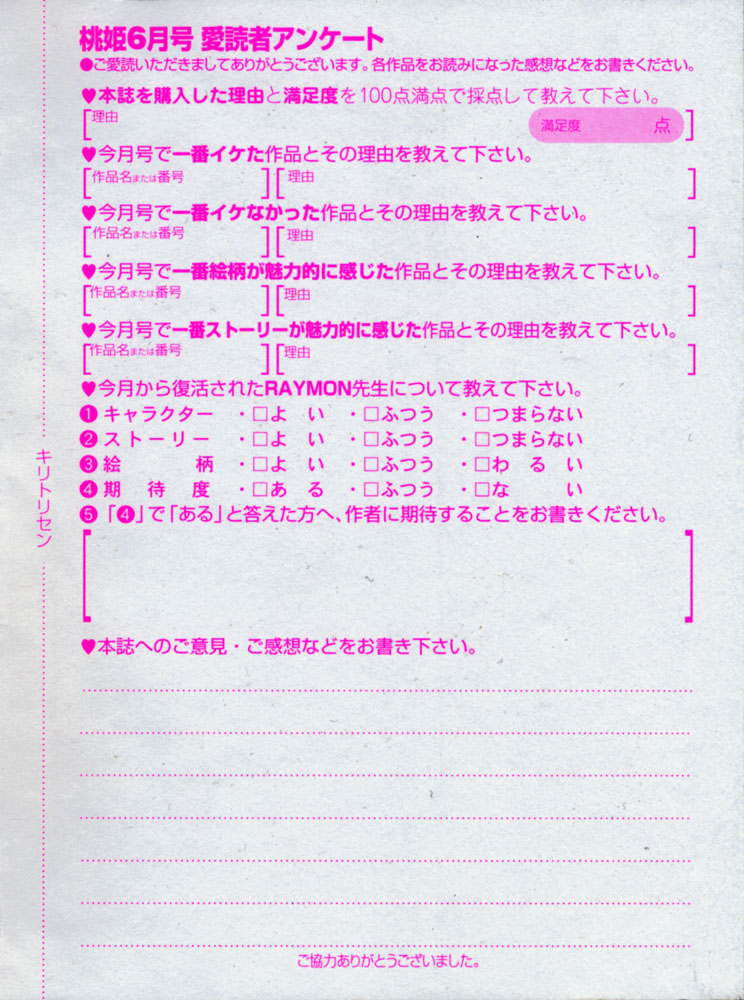 桃姫6月号 愛読者アンケート
●ご愛読いただきましてありがとうございます。各作品をお読みになった感想などをお書きください。
♥本誌を購入した理由と満足度を100点満点で採点して教えて下さい。
[理由 満足度 点]
♥今月号で一番イケた作品とその理由を教えて下さい。
[作品名または番号][理由 ]
♥今月号で一番イケなかった作品とその理由を教えて下さい。
[作品名または番号][理由 ]
♥今月号で一番絵柄が魅力的に感じた作品とその理由を教えて下さい。
[作品名または番号][理由 ]
♥今月号で一番ストーリーが魅力的に感じた作品とその理由を教えて下さい。
[作品名または番号][理由 ]
♥今月から復活されたRAYMON先生について教えて下さい。
❶キャラクター ・□よ い ・□ふつう ・□つまらない
❷ストーリー ・□よ い ・□ふつう ・□つまらない
❸絵 柄 ・□よ い ・□ふつう ・□わ る い
❹期 待 度 ・□あ る ・□ふつう ・□な い
❺「❹」で「ある」と答えた方へ、作者に期待することをお書きください。
♥本誌へのご意見・ご感想などをお書き下さい。
ご協力ありがとうございました。
キリトリセン